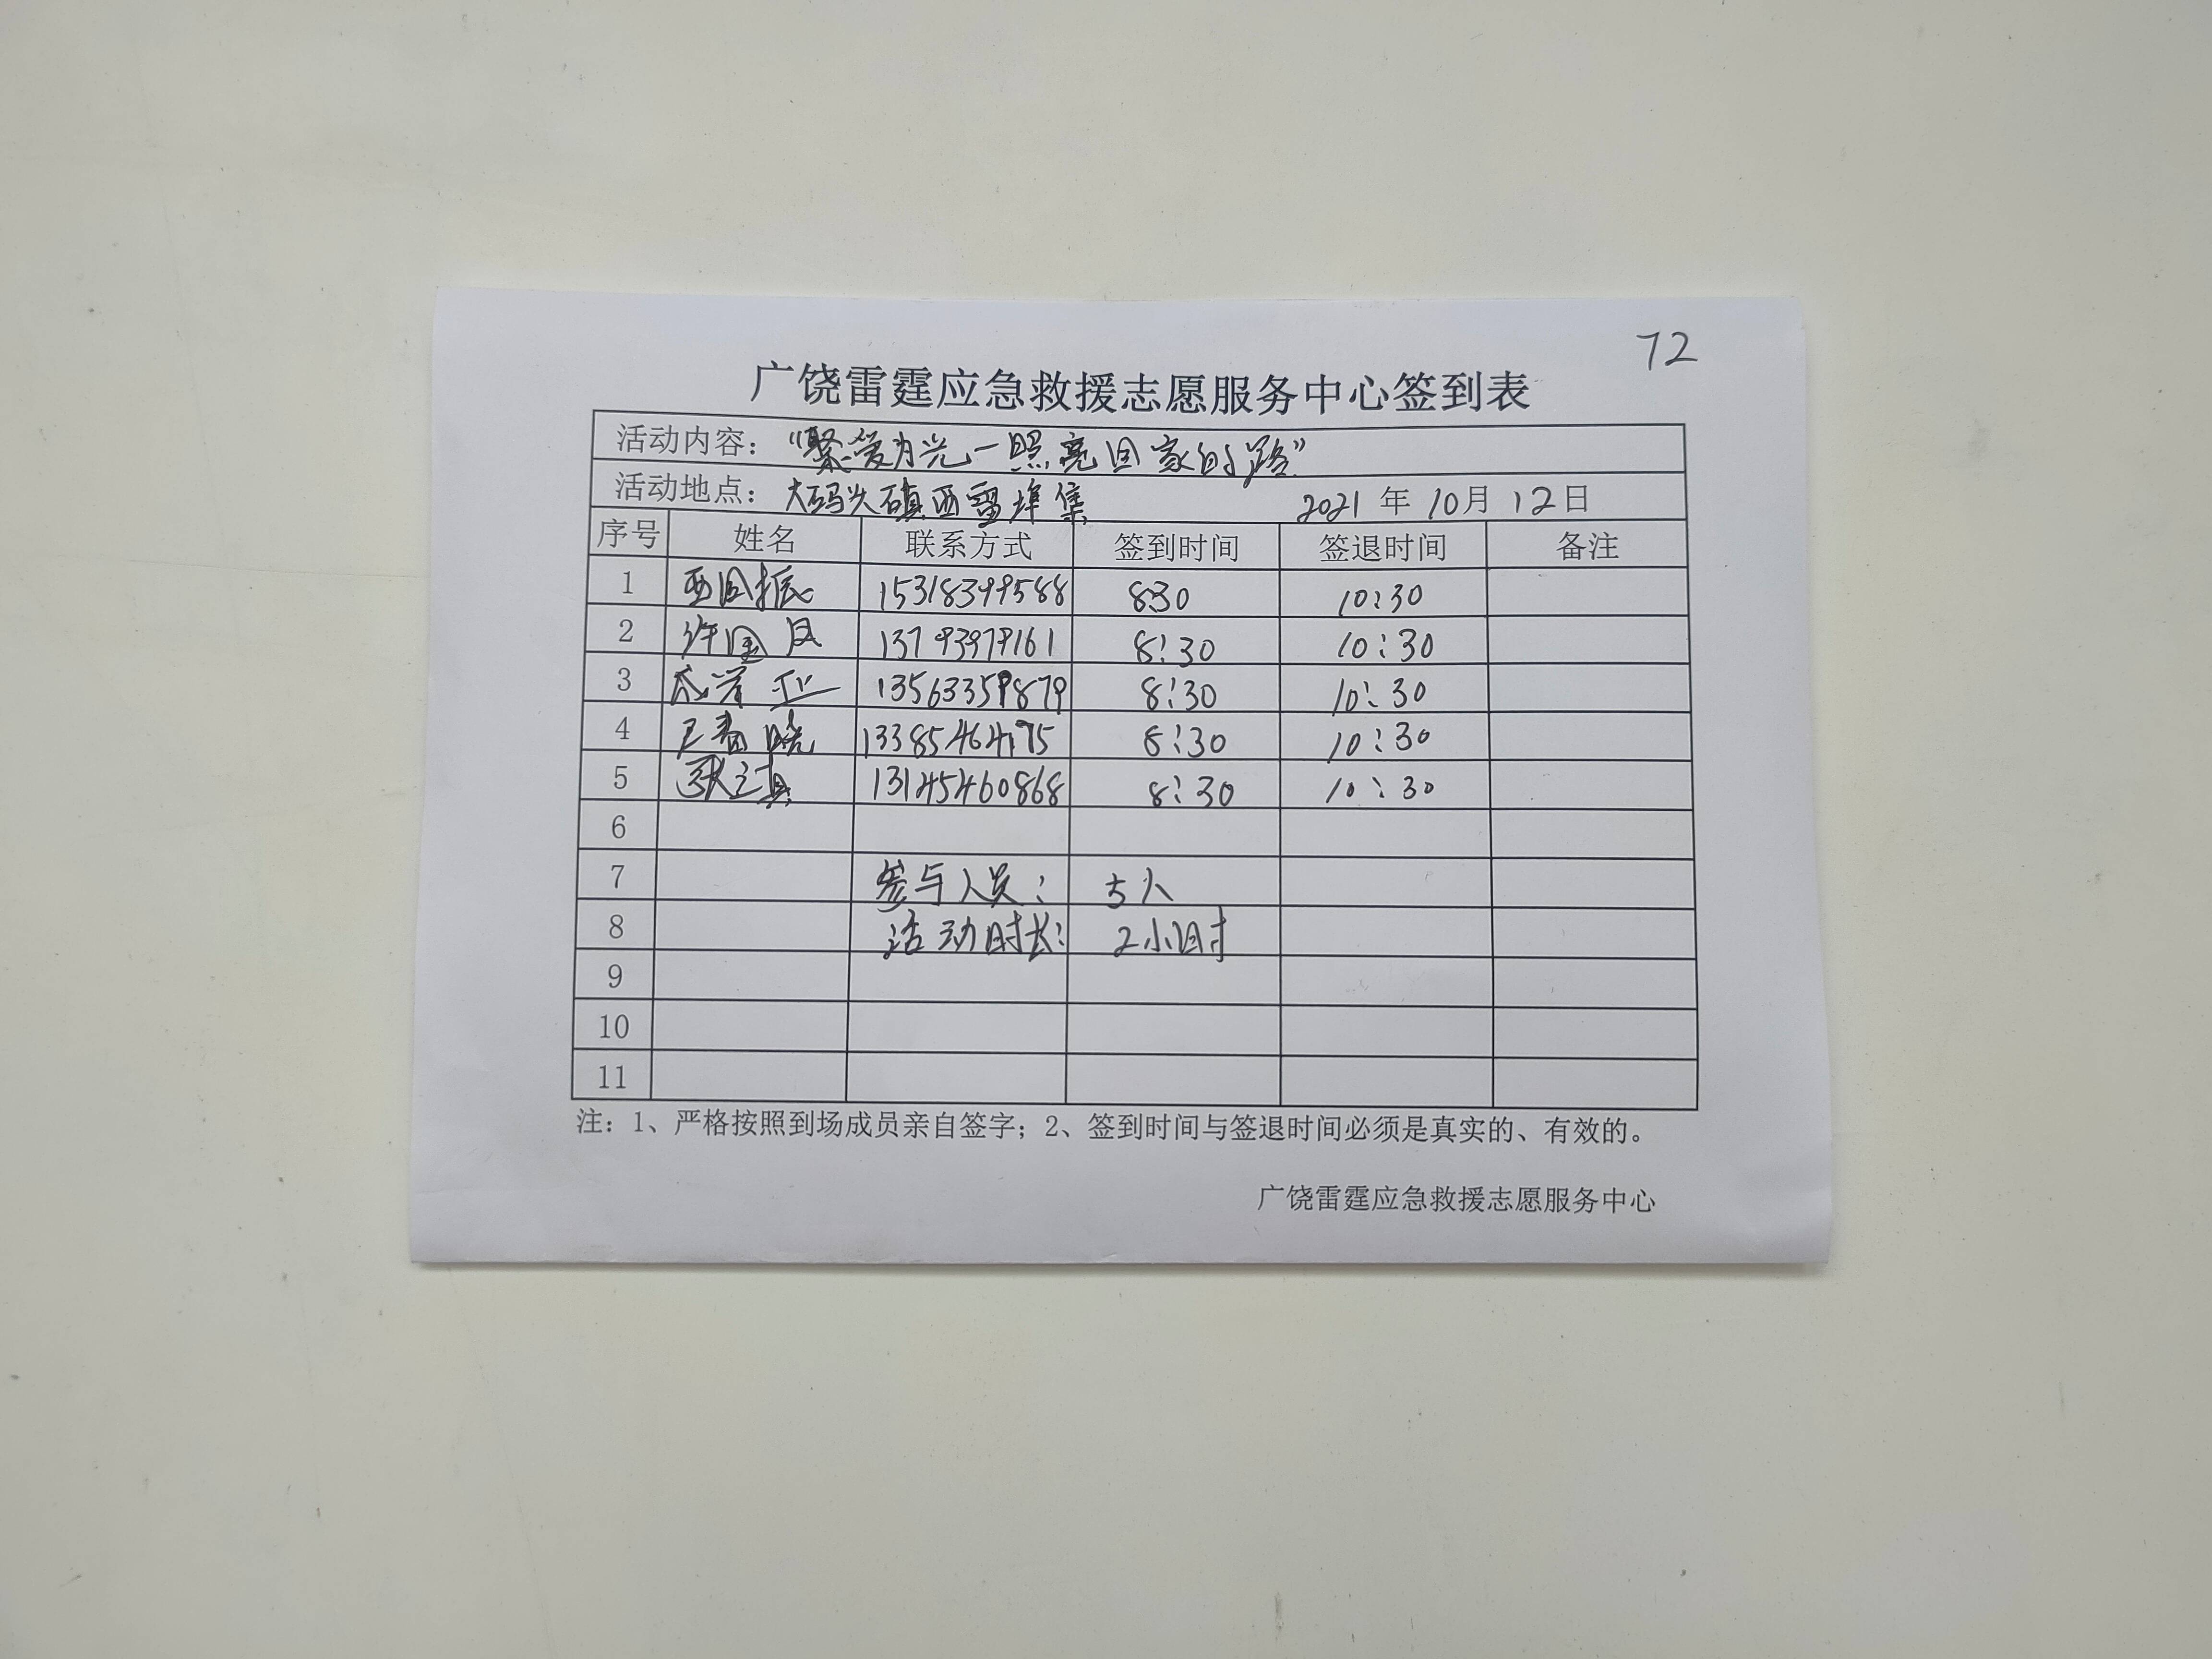 72
广饶雷霆应急救援志愿服务中心签到表
活动内容：“聚爱为光一照亮回家的路”
活动地点：大码头镇西雷埠集 2021 年 10月 12日
序号 姓名 联系方式 签到时间 签退时间 备注
1 西国振 15318399588 8:30 10:30
2 许国凤 13793979161 8:30 10:30
3 成学业 13563359879 8:30 10:30
4 王春晓 13385464175 8:30 10:30
5 13145460868 8:30 10:30
6
7 参与人员： 5人
8 活动时长： 2小时
9
10
11
注：1、严格按照到场成员亲自签字；2、签到时间与签退时间必须是真实的、有效的。
广饶雷霆应急救援志愿服务中心